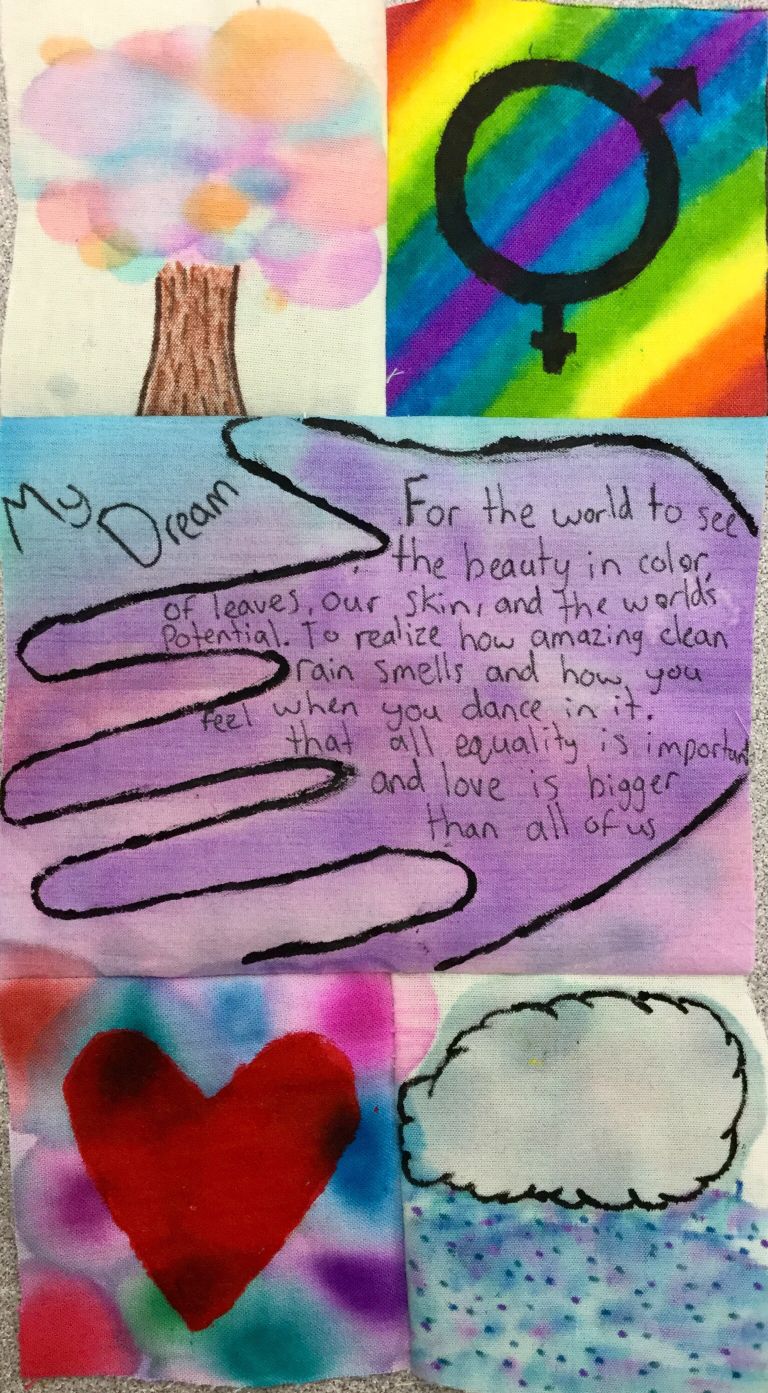 My Dream
For the world to see
the beauty in color,
of leaves, our skin, and the world's
Potential. To realize how amazing clean
rain smells and how you
feel when you dance in it.
that all equality is important
and love is bigger
than all of us